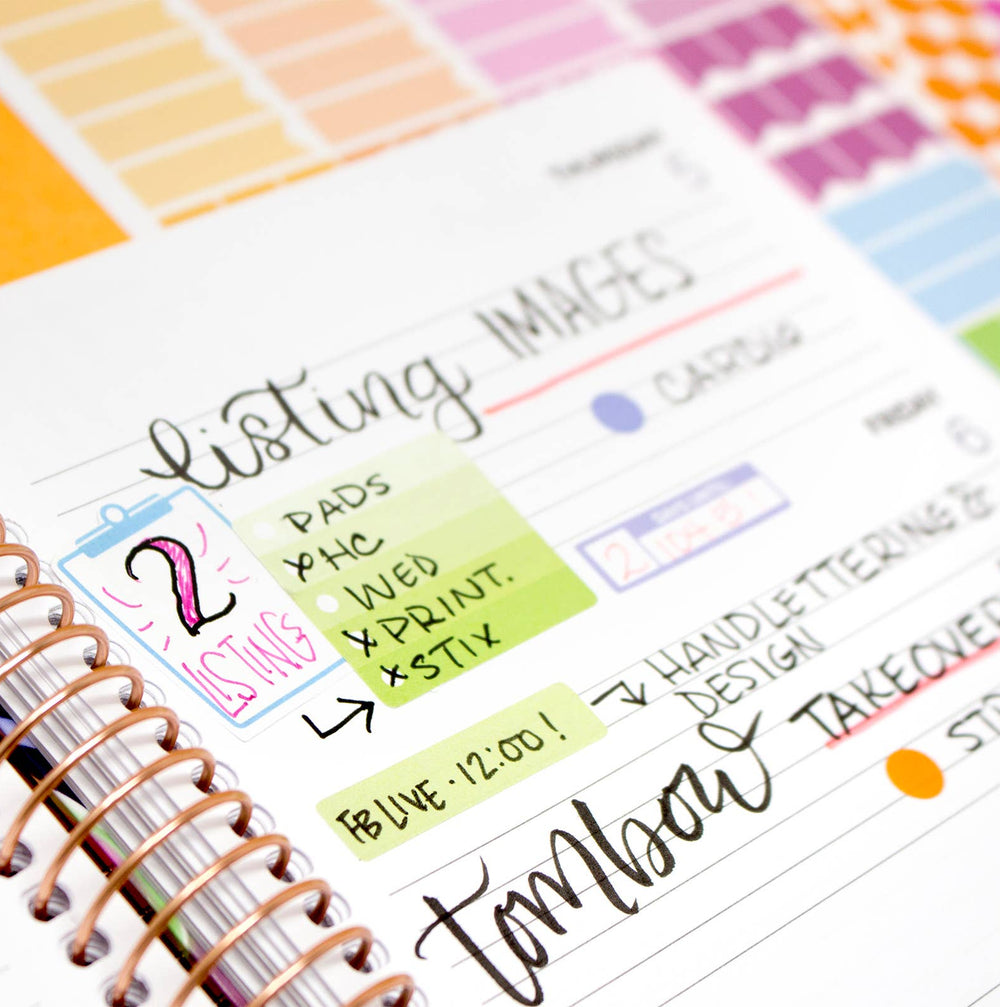 THURSDAY
5
listing IMAGES
CARDIO
2
LISTINGS
PADS
x HC
WED
x PRINT.
x STIX
FRIDAY
6
2
FB LIVE · 12:00!
→ HANDLETTERING &
DESIGN
tombow TAKEOVER